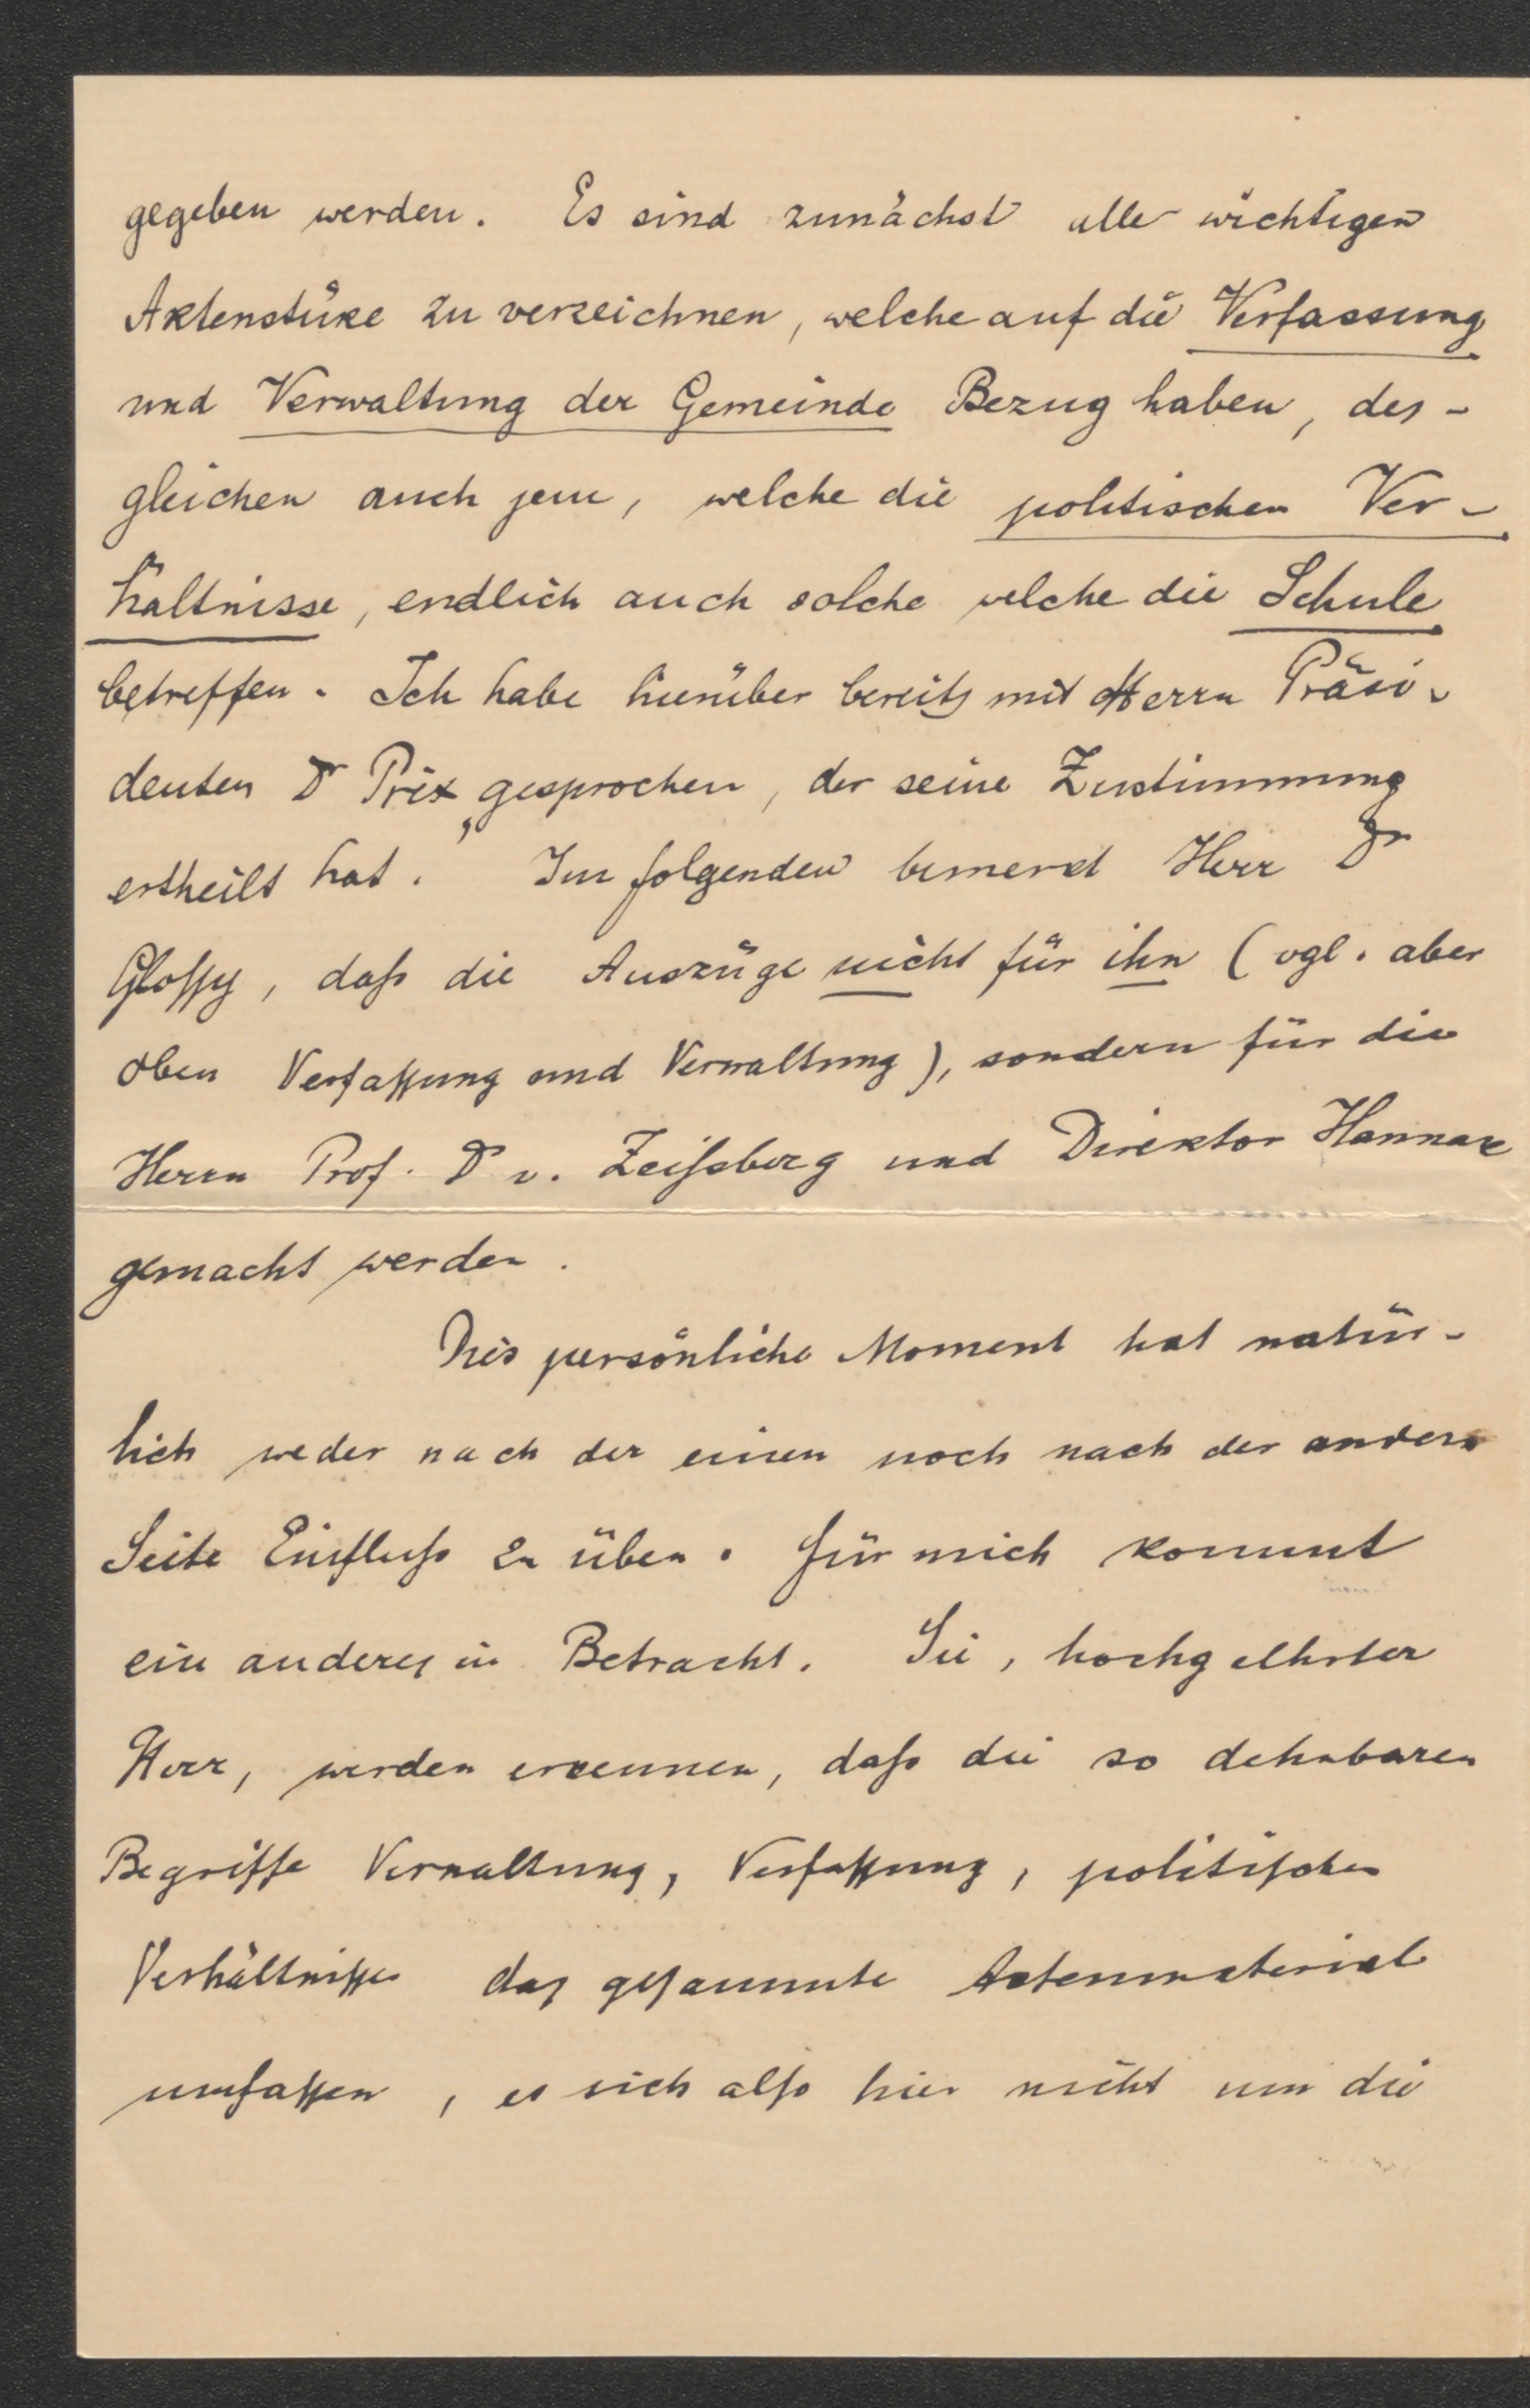 gegeben werden. Es sind zunächst alle wichtigen
Aktenstüke zu verzeichnen, welche auf die Verfassung
und Verwaltung der Gemeinde Bezug haben, des-
gleichen auch jene, welche die politischen Ver-
hältnisse, endlich auch solche welche die Schule
betreffen. Ich habe hierüber bereits mit Herrn Präsi-
denten Dr Prix gesprochen, der seine Zustimmung
ertheilt hat." Im folgenden bemerkt Herr Dr
Glossy, daß die Auszüge nicht für ihn (vgl. aber
oben Verfassung und Verwaltung), sondern für die
Herrn Prof. Dr v. Zeißberg und Direktor Hannak
gemacht werden.
Dies persönliche Moment hat natür-
lich weder nach der einen noch nach der andern
Seite Einfluß zu üben. Für mich kommt
ein anderes in Betracht. Sie, hochgeehrter
Herr, werden erkennen, daß die so dehnbaren
Begriffe Verwaltung, Verfassung, politischen
Verhältnisse das gesammte Aktenmaterial
umfassen, es sich also hier nicht um die